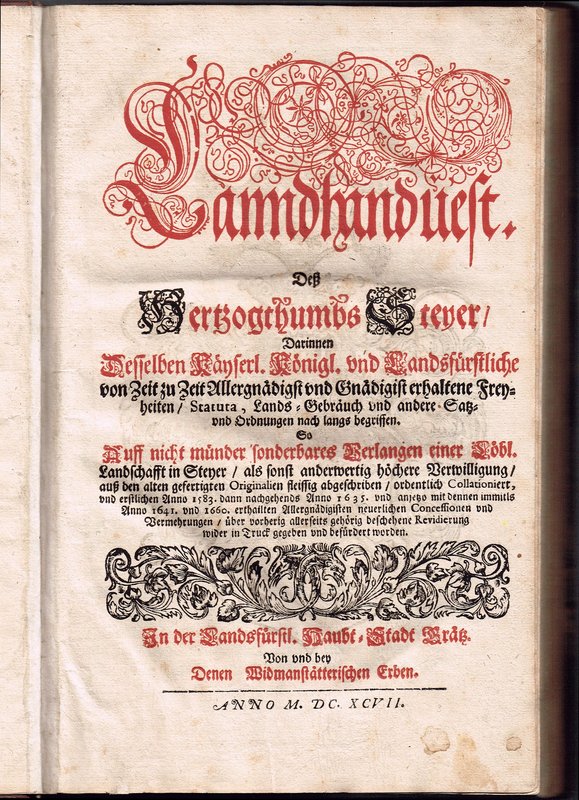 Lanndhanduest.
Deß
Hertzogthumbs Steyer/
Darinnen
Desselben Käyserl. Königl. vnd Landsfürstliche
von Zeit zu Zeit Allergnädigst vnd Gnädigist erhaltene Frey-
heiten / Statuta, Lands-Gebräuch vnd andere Satz-
vnd Ordnungen nach langs begriffen.
So
Auff nicht münder sonderbares Verlangen einer Löbl.
Landschafft in Steyer / als sonst anderwertig höchere Verwilligung /
auß den alten gefertigten Originalien fleissig abgeschriben / ordentlich Collationiert,
vnd erstlichen Anno 1583. dann nachgehends Anno 1635. vnd anjetzo mit dennen immitls
Anno 1641. vnd 1660. erthailten Allergnädigisten neuerlichen Concessionen vnd
Vermehrungen / über vorherig allerseits gehörig beschehene Revidierung
wider in Truck gegeben vnd befürdert worden.
In der Landsfürstl. Haubt-Stadt Grätz.
Von vnd bey
Denen Widmanstätterischen Erben.
ANNO M. DC. XCVII.